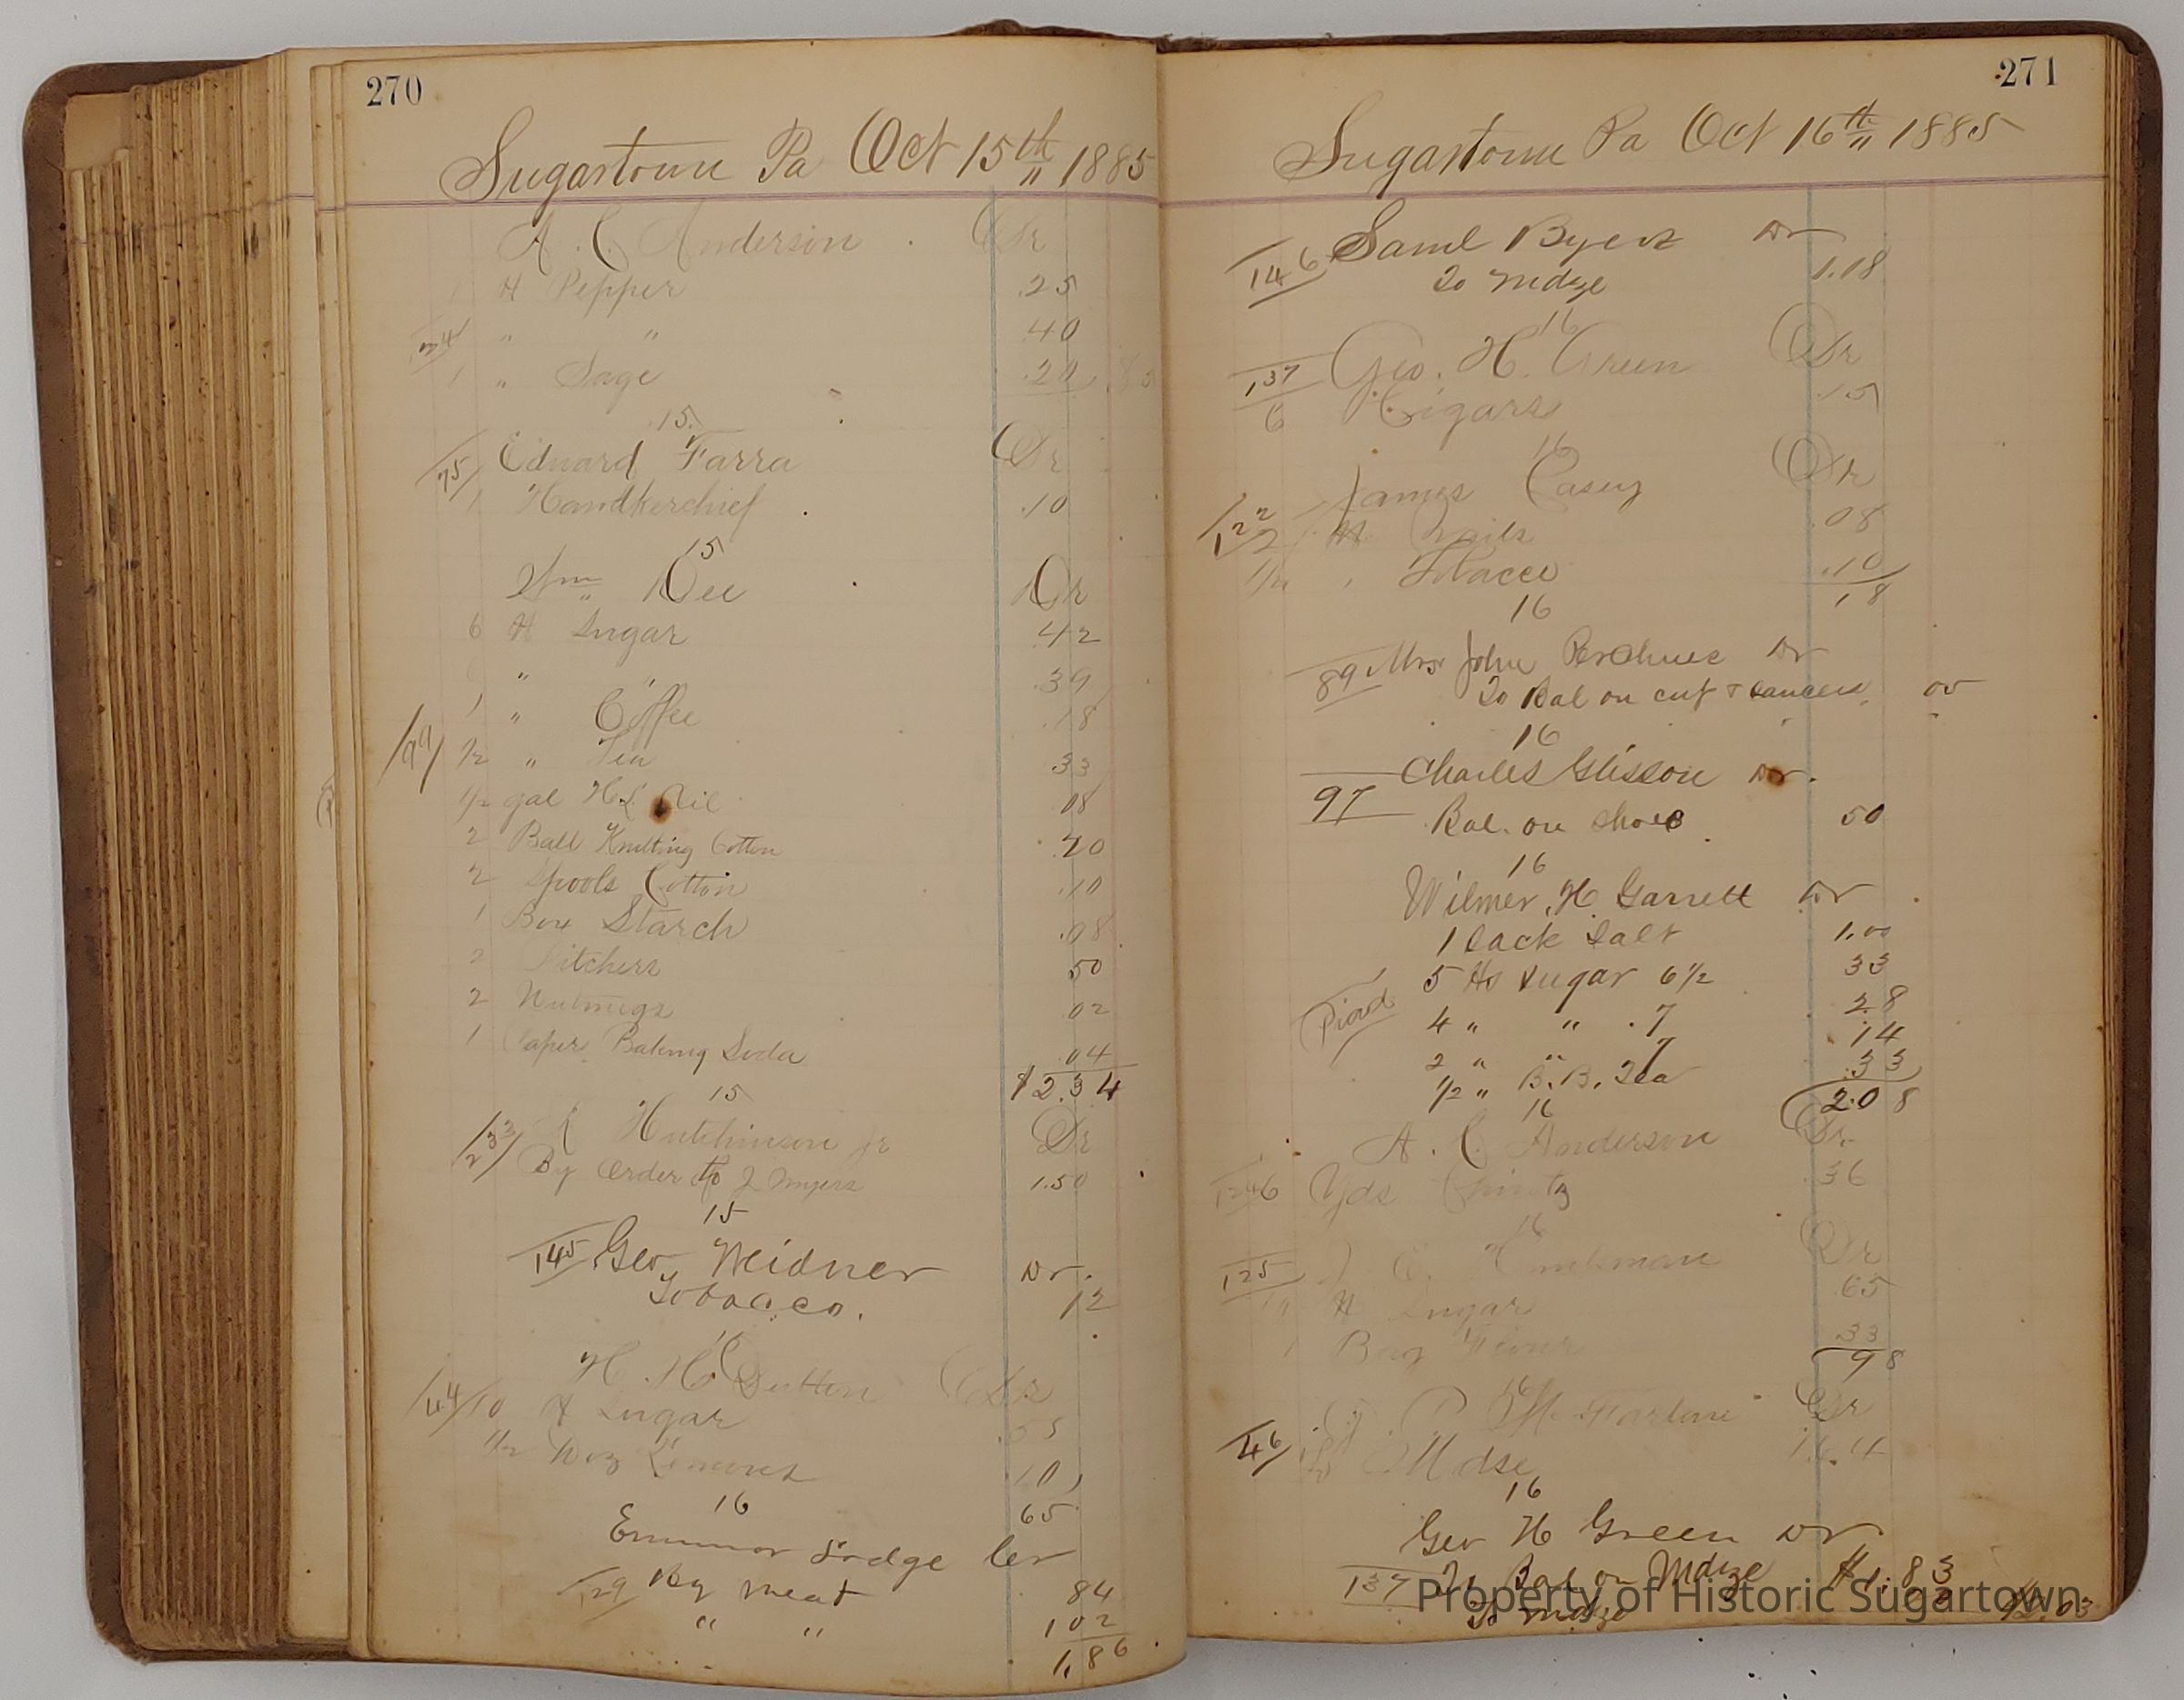 270
Sugartown Pa Oct 15th 1885
A. C. Anderson Dr
1 H Pepper .25
34 " " 40
1 " Sage .20 .85
15
75 Edward Farra Dr
1 Handkerchief .10
15
Wm Dee Dr
6 H Sugar .42
" " .39
1 " Coffee .18
99 1/2 " Tea 33
1/2 gal H.L. Oil .08
2 Ball Knitting Cotton .20
2 Spools Cotton .10
1 Box Starch .08
2 Pitchers 50
2 Nutmegs .02
1 Paper Baking Soda .04
$2.34
15
233 Hutchinson Jr Dr
By Order to J Myers 1.50
15
145 Geo Weidner Dr.
Tobacco. 12
16
H. H. Dutton Dr
44 10 H Sugar .55
1/2 Doz Lemons 10
65
16
Dodge Cr
129 By Meat 84
" " 102
1,86
271
Sugartown Pa Oct 16th 1885
146 Saml Byers Dr
To Mdze 1.18
16
137 Geo. H. Green Dr
6 Cigars .15
16
James Casey Dr
122 2 H Nails .08
" Tobacco .10
18
16
89 Mrs John Dr
To Bal on cup & saucers
16
Charles Glisson Dr.
97 Bal. on shoes 50
16
Wilmer H. Garrett Dr
1 Sack Salt 1.00
5 Hs Sugar 6 1/2 33
4 " " .7 28
2 " " 7 14
1/2 " B. B. Tea .33
2.08
16
A. C. Anderson Dr.
6 Yds .36
16
125 Dr
H Sugar 65
1 Bag Flour .33
98
16
Dr
46 To Mdse
16
Geo H Green Dr
137 To Bal on Mdze $1.83
To Mdze
Property of Historic Sugartown